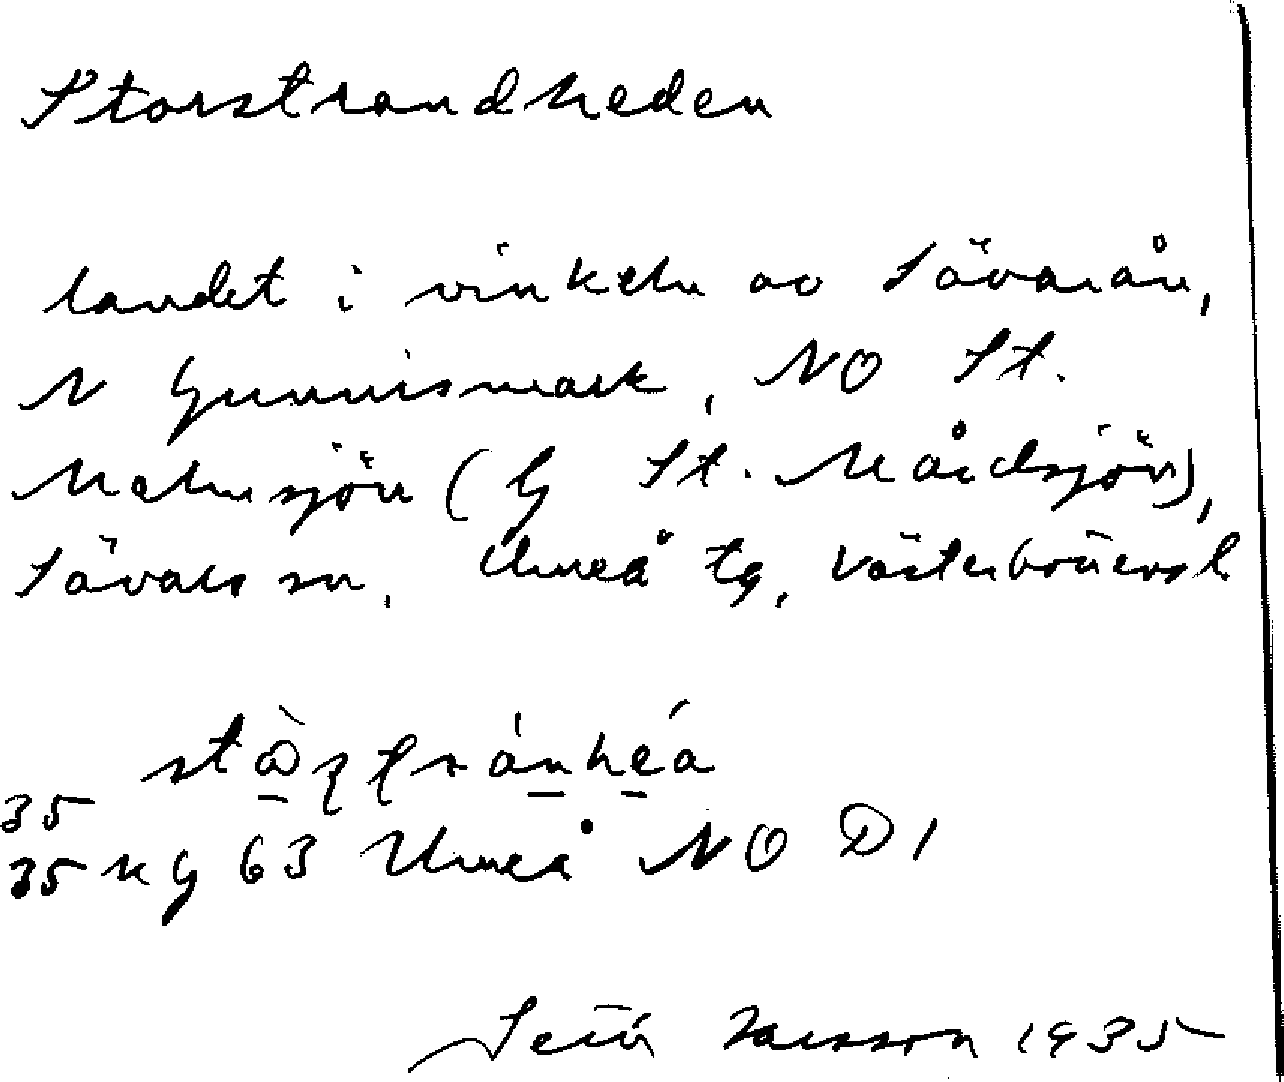 Storstrandheden
landet i vinkeln av Sävarån,
N Gunnismark, NO St.
Malmsjön (G St. Mårdsjön),
Sävars sn. Umeå tg, Västerbottens l.
35
35 kg 63 Umeå NO D1
Jenssson 1935